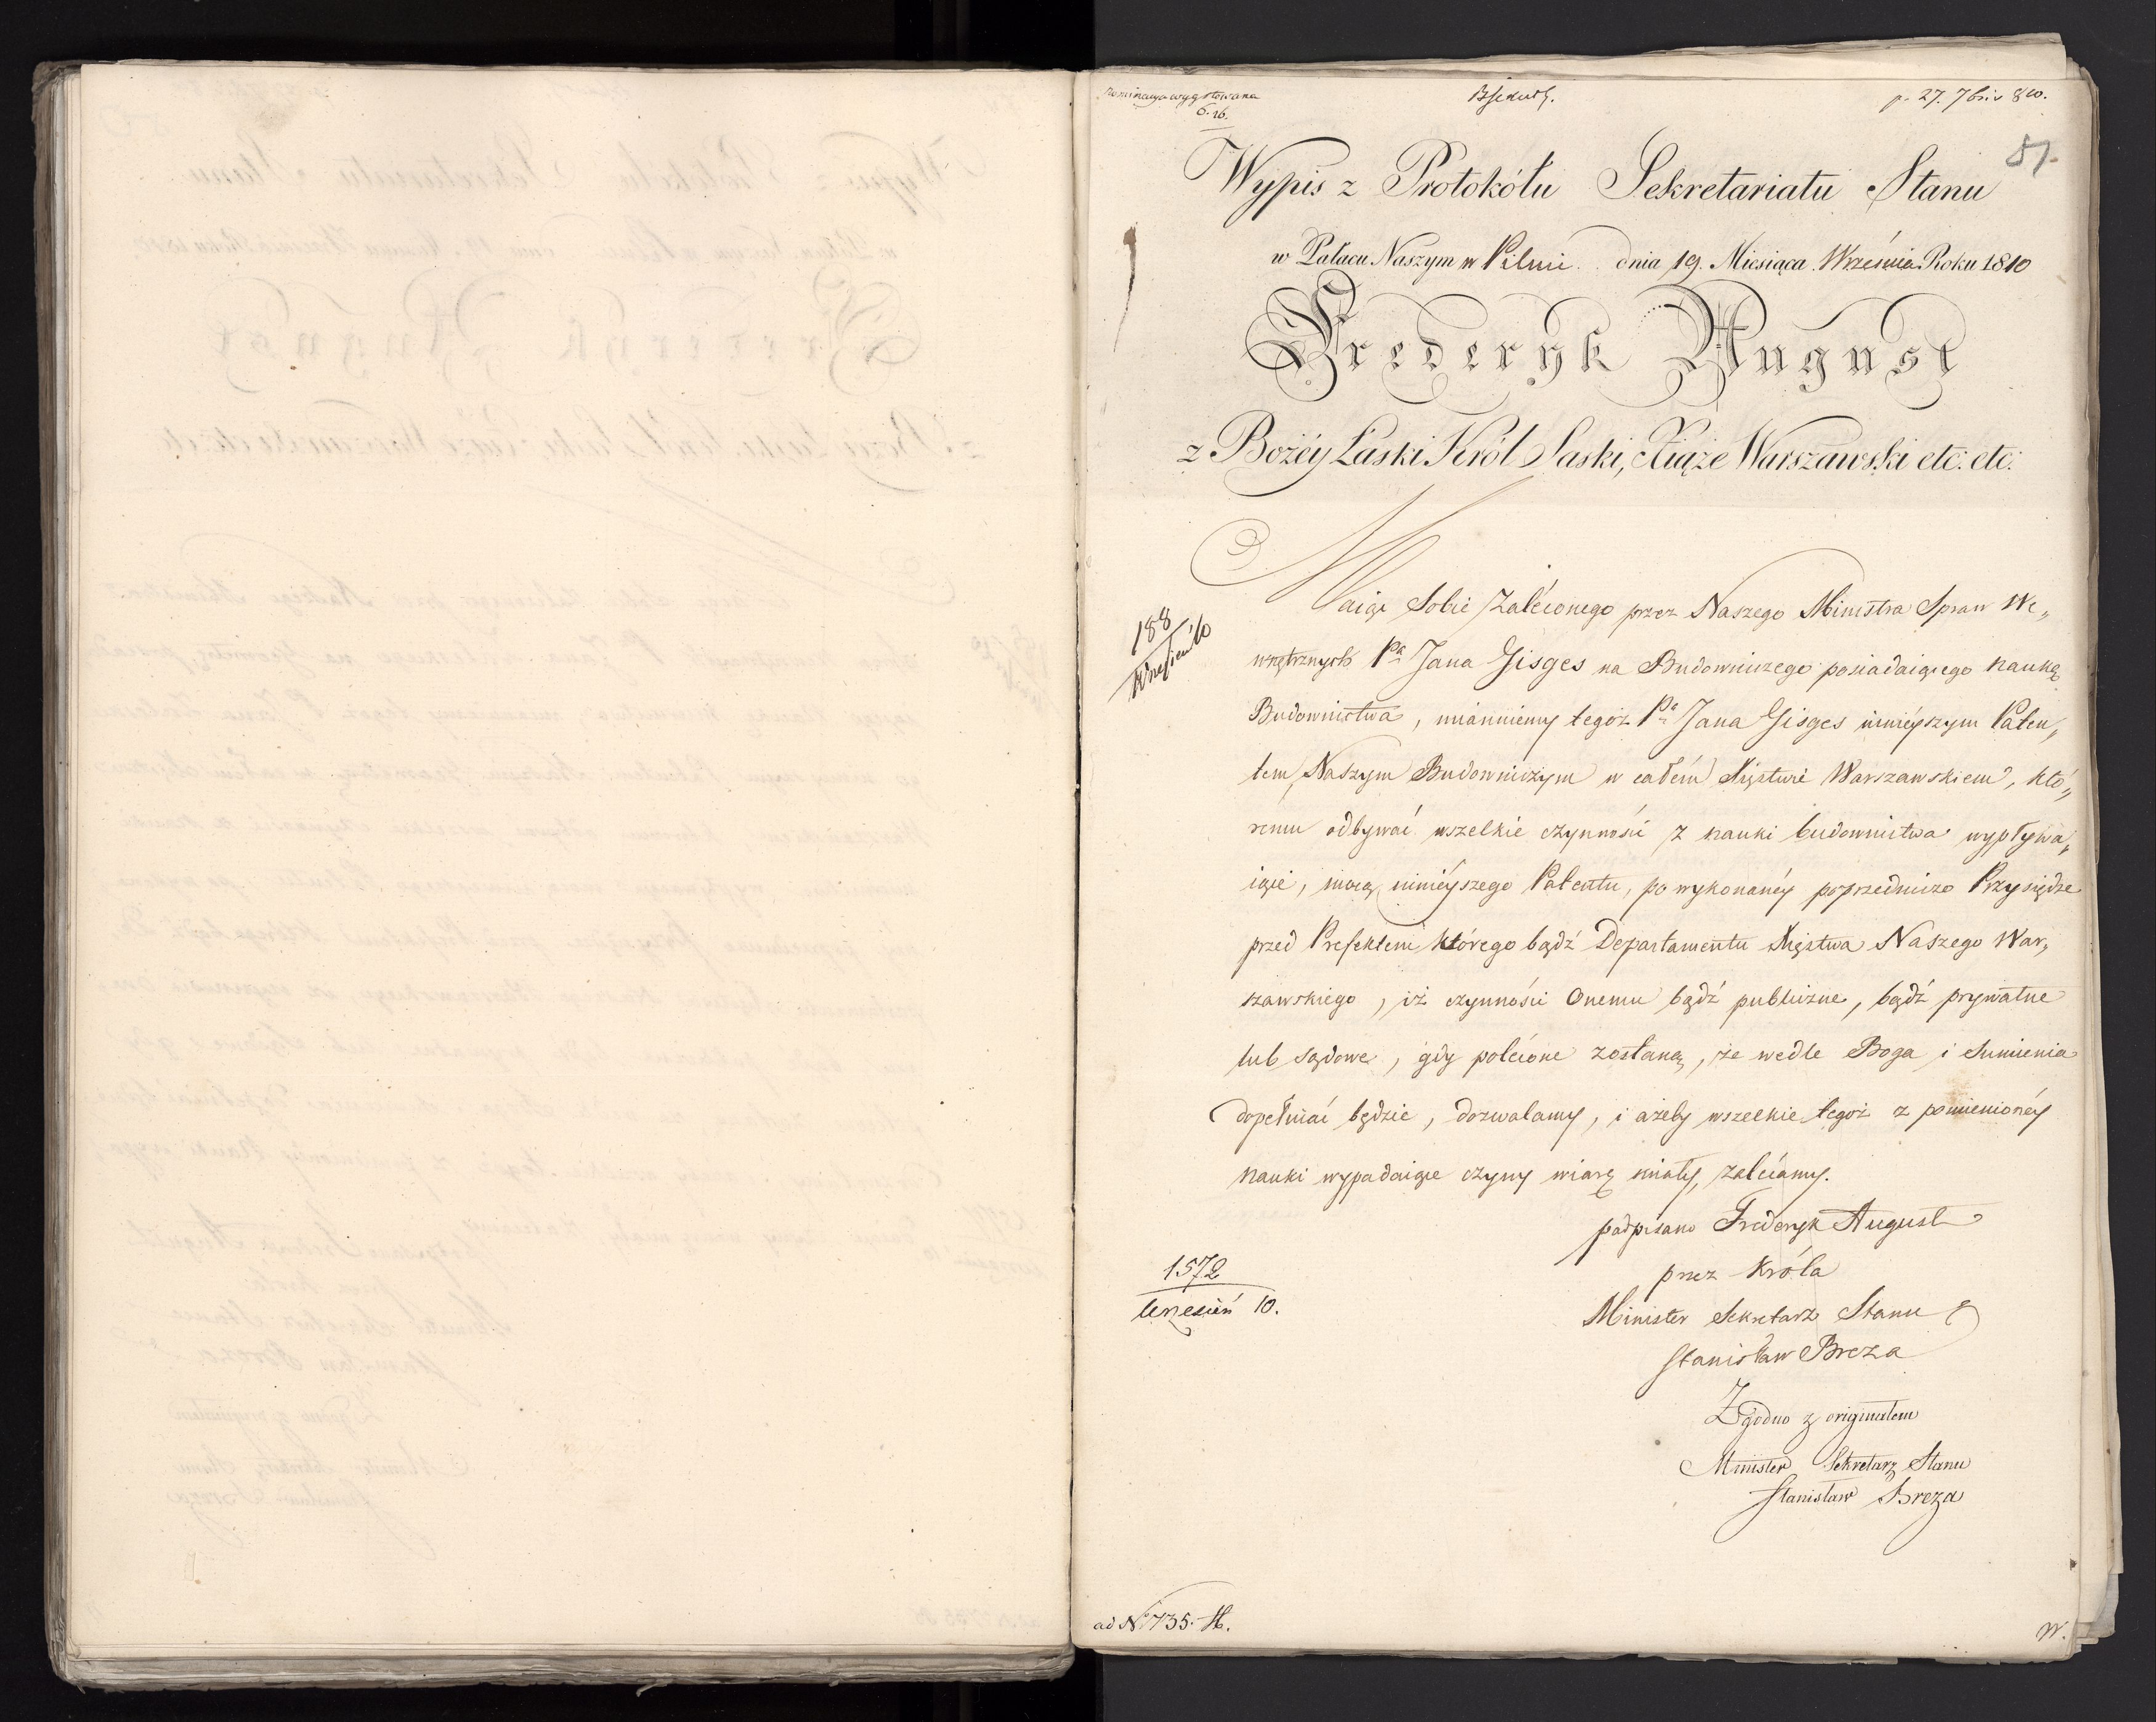 Nominacya wygotowana
6. 26.
p. 27. 7bris 810.
51.
Wypis z Protokółu Sekretariatu Stanu
w Pałacu Naszym w Pilnic. dnia 19. Miesiąca Września Roku 1810
Frederyk August
z Bożéy Łaski Król Saski, Xiąże Warszawski etc. etc.
Maiąc Sobie Zaleconego przez Naszego Ministra Spraw We„
wnętrznych Pa Jana Gisges na Budowniczego posiadaiącego naukę
Budownictwa, mianuiemy tegoż Pa Jana Gisges ninieyszym Paten„
tem, Naszym Budowniczym w całém Xięstwie Warszawskiem, któ„
remu odbywać wszelkie czynności z nauki budownictwa wypływa„
iące, mocą ninieyszego Patentu, po wykonanéy poprzedniczo Przysiędze
przed Prefektem którego bądź Departamentu Xięstwa Naszego War„
szawskiego, iż czynności Onemu bądź publiczne, bądź prywatne
lub sądowe, gdy polecone zostaną, że wedle Boga i Sumienia
dopełniać będzie, dozwalamy, i ażeby wszelkie tegoż z pomienionéy
nauki wypadaiące czyny wiarę miały, zalecamy.
188
Wrzesień 10
podpisano Frederyk August
przez Króla
Minister Sekretarz Stanu
Stanisław Breza
1572
wrzesień 10.
Zgodno z originałem
Minister Sekretarz Stanu
Stanisław Breza
ad No 735. H.
W.